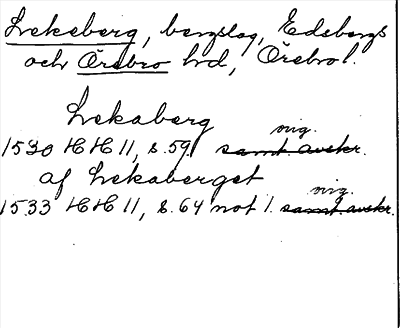 Lekeberg, bergslag, Edsbergs
och Örebro hd, Örebro l.
Lekaberg
orig.
1530 HH 11, s. 59, samt. avskr.
af Lekaberget
orig.
1533 HH 11, s. 64 not 1. samt. avskr.